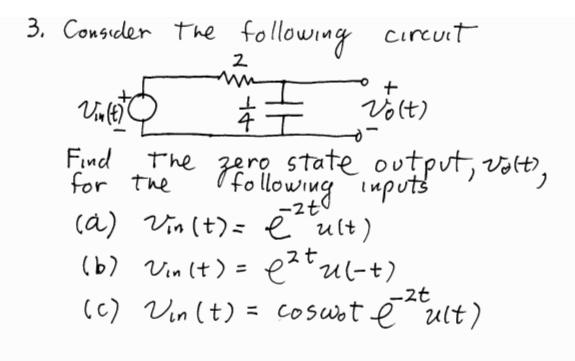 3. Consider the following circuit
2
+ +
Vin(t) 1/4 Vo(t)
- -
Find the zero state output, vo(t),
for the following inputs
(a) Vin(t) = e^-2t u(t)
(b) Vin(t) = e^2t u(-t)
(c) Vin(t) = cosω0t e^-2t u(t)